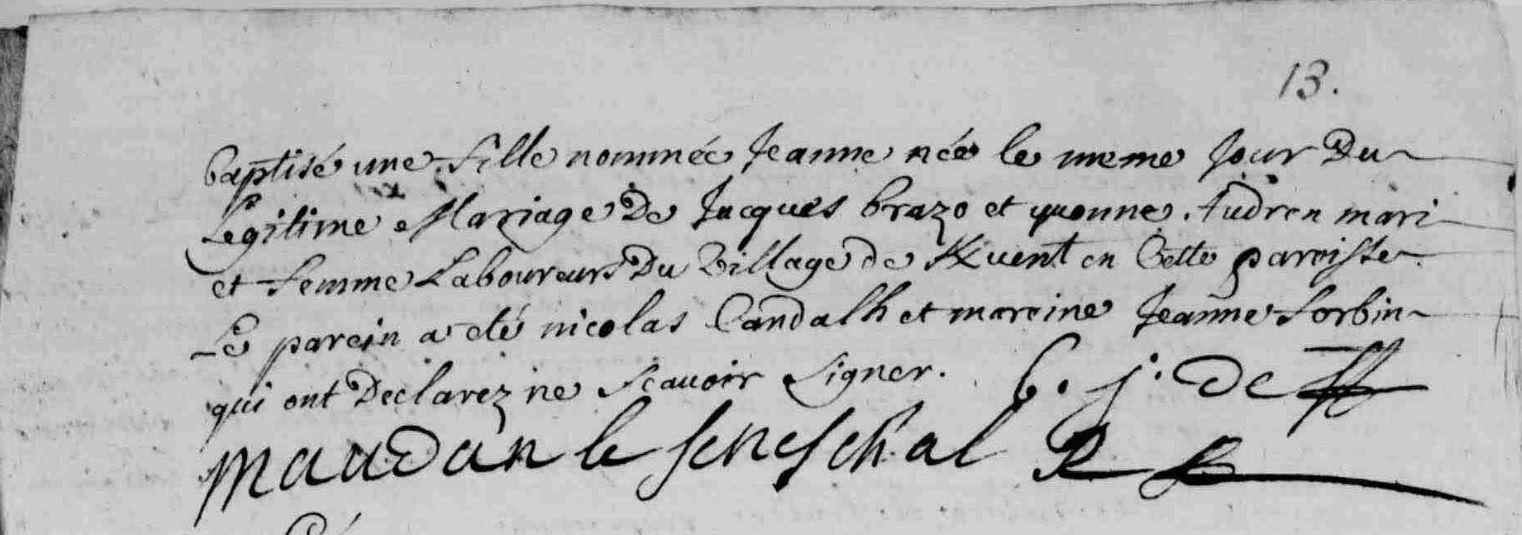 13.
baptisé une fille nommée Jeanne née le meme Jour Du
Legitime Mariage De Jacques brazo et yvonne Audren mari
et femme Laboureurs Du Village de en Cette paroisse
Le parein a eté nicolas Candalh et mareine Jeanne Sorbin
qui ont Declarez ne scavoir signer. 6. j. de
maudan le seneschal R